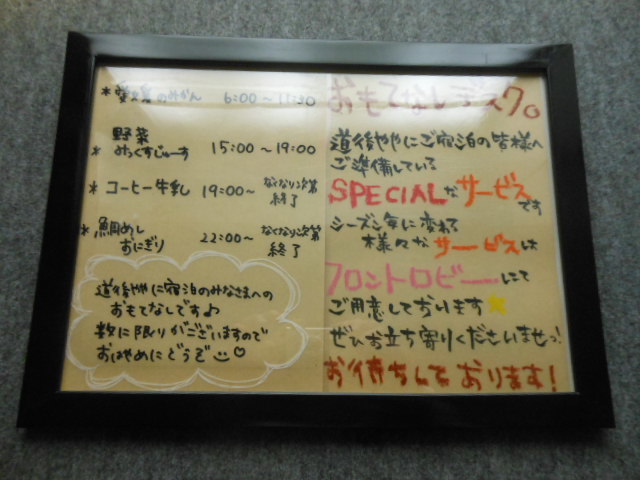 * 愛媛のみかん 6:00～11:30
野菜
* みっくすじゅーす 15:00～19:00
* コーヒー牛乳 19:00～ なくなり次第終了
* 鯛めしおにぎり 22:00～ なくなり次第終了
道後ややに宿泊のみなさまへの
おもてなしです♪
数に限りがございますので
お早めにどうぞ♡
おもてなしデスク。
道後ややにご宿泊の皆様へ
ご準備している
SPECIALなサービスです
シーズン毎に変わる
様々なサービスは
フロントロビーにて
ご用意しております★
ぜひお立ち寄りくださいませっ!
お待ちしております!